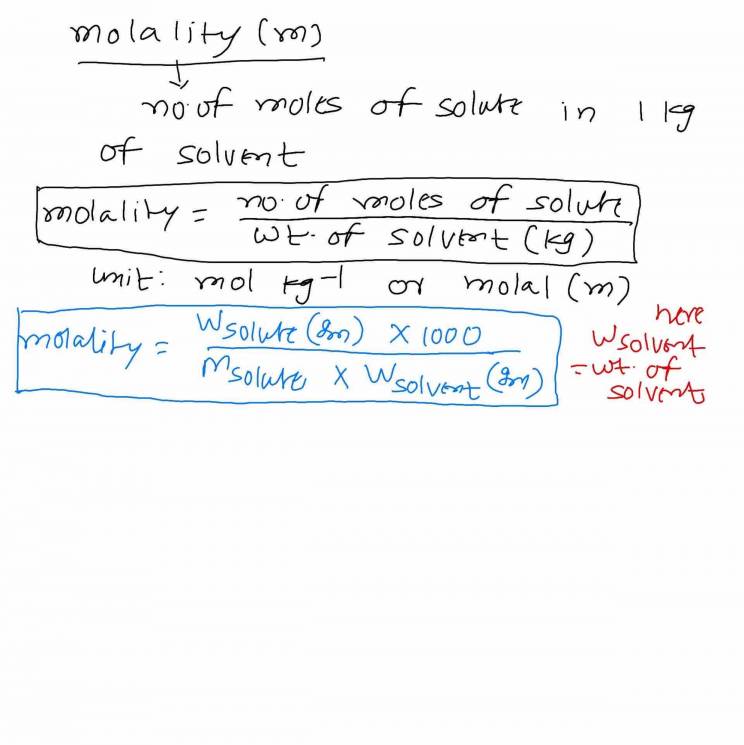 molality (m)
no. of moles of solute in 1 kg
of solvent
molality = no. of moles of solute
wt. of solvent (kg)
unit: mol kg-1 or molal (m)
molality = Wsolute (gm) X 1000
Msolute X Wsolvent (gm)
here
Wsolvent
= wt. of
solvent